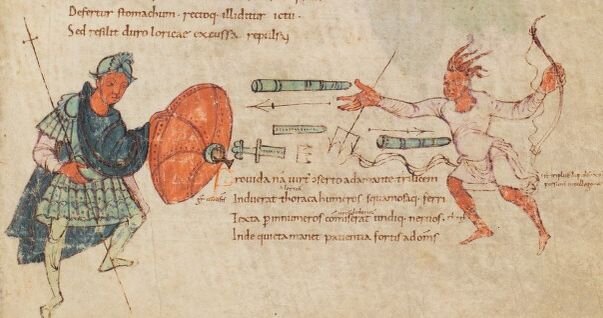 Defertur stomachum · rectoq· illiditur ictu ·
Sed resilit duro loricae excussa repulsu
Prouida nā uirt᾽ ꝯserto adamante trilicem
Induerat thoraca humeros squamosaq· ferri
Texta ꝑ innumeros cōmiserat undiq· neruos·
Inde quieta manet patientia fortis ad om̄s